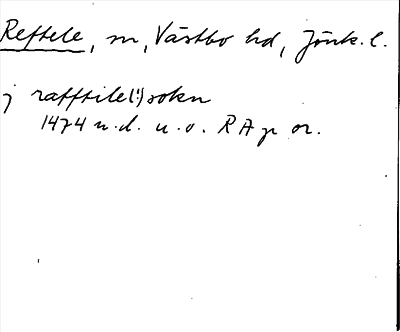 Reftele, sn, Västbo hd, Jönk. l.
j rafftile(!)sokn
1474 u.d. u.o. RAp or.